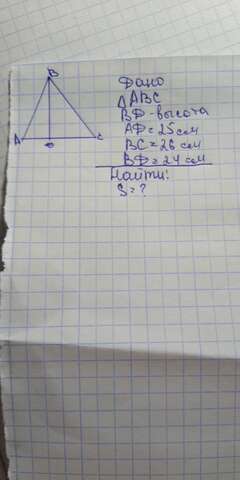 B
A
C
D
Дано
△ABC
BD - высота
AD = 25 см
BC = 26 см
BD = 24 см
Найти:
S = ?